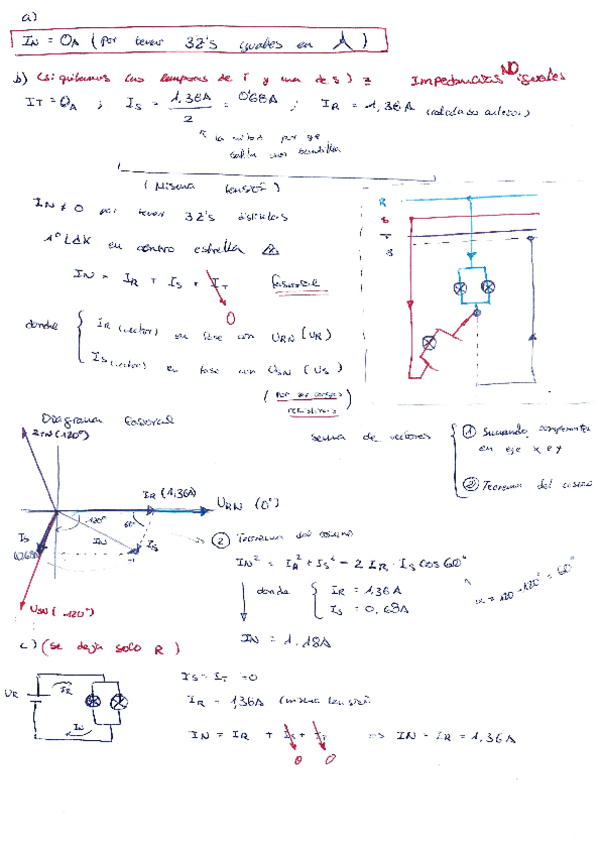 a)
IN = 0A (por tener 3Z's iguales en ⅄)
b) (si quitamos las lamparas de T y una de S) = Impedancias NO iguales
IT = 0A ; IS = 1,36A / 2 = 0'68A ; IR = 1,36A (calculado anterior)
la mitad por qe
falta una bombilla
(Misma tensión)
IN ≠ 0 por tener 3Z's distintas
1º LdK en centro estrella
IN = IR + IS + IT fasorial
0
donde { IR (vector) en fase con URN (UR)
IS (vector) en fase con USN (US)
(por ser cargas
resistivas)
R
S
T
Diagrama fasorial
(120º)
IR (1,36A)
URN (0º)
120º
60º
IN
IS
IS
0,68A
USN (-120º)
suma de vectores { ① Sumando componentes
en eje x e y
② Teorema del coseno
② Teorema del coseno
IN² = IR² + IS² - 2 IR · IS cos 60º
donde { IR = 1,36A
IS = 0,68A
α = 180 - 120º = 60º
IN = 1.18A
c) (se deja solo R)
UR
IR
IN
IS = IT = 0
IR = 1,36A (misma tensión)
IN = IR + IS + IT => IN = IR = 1,36A
0 0